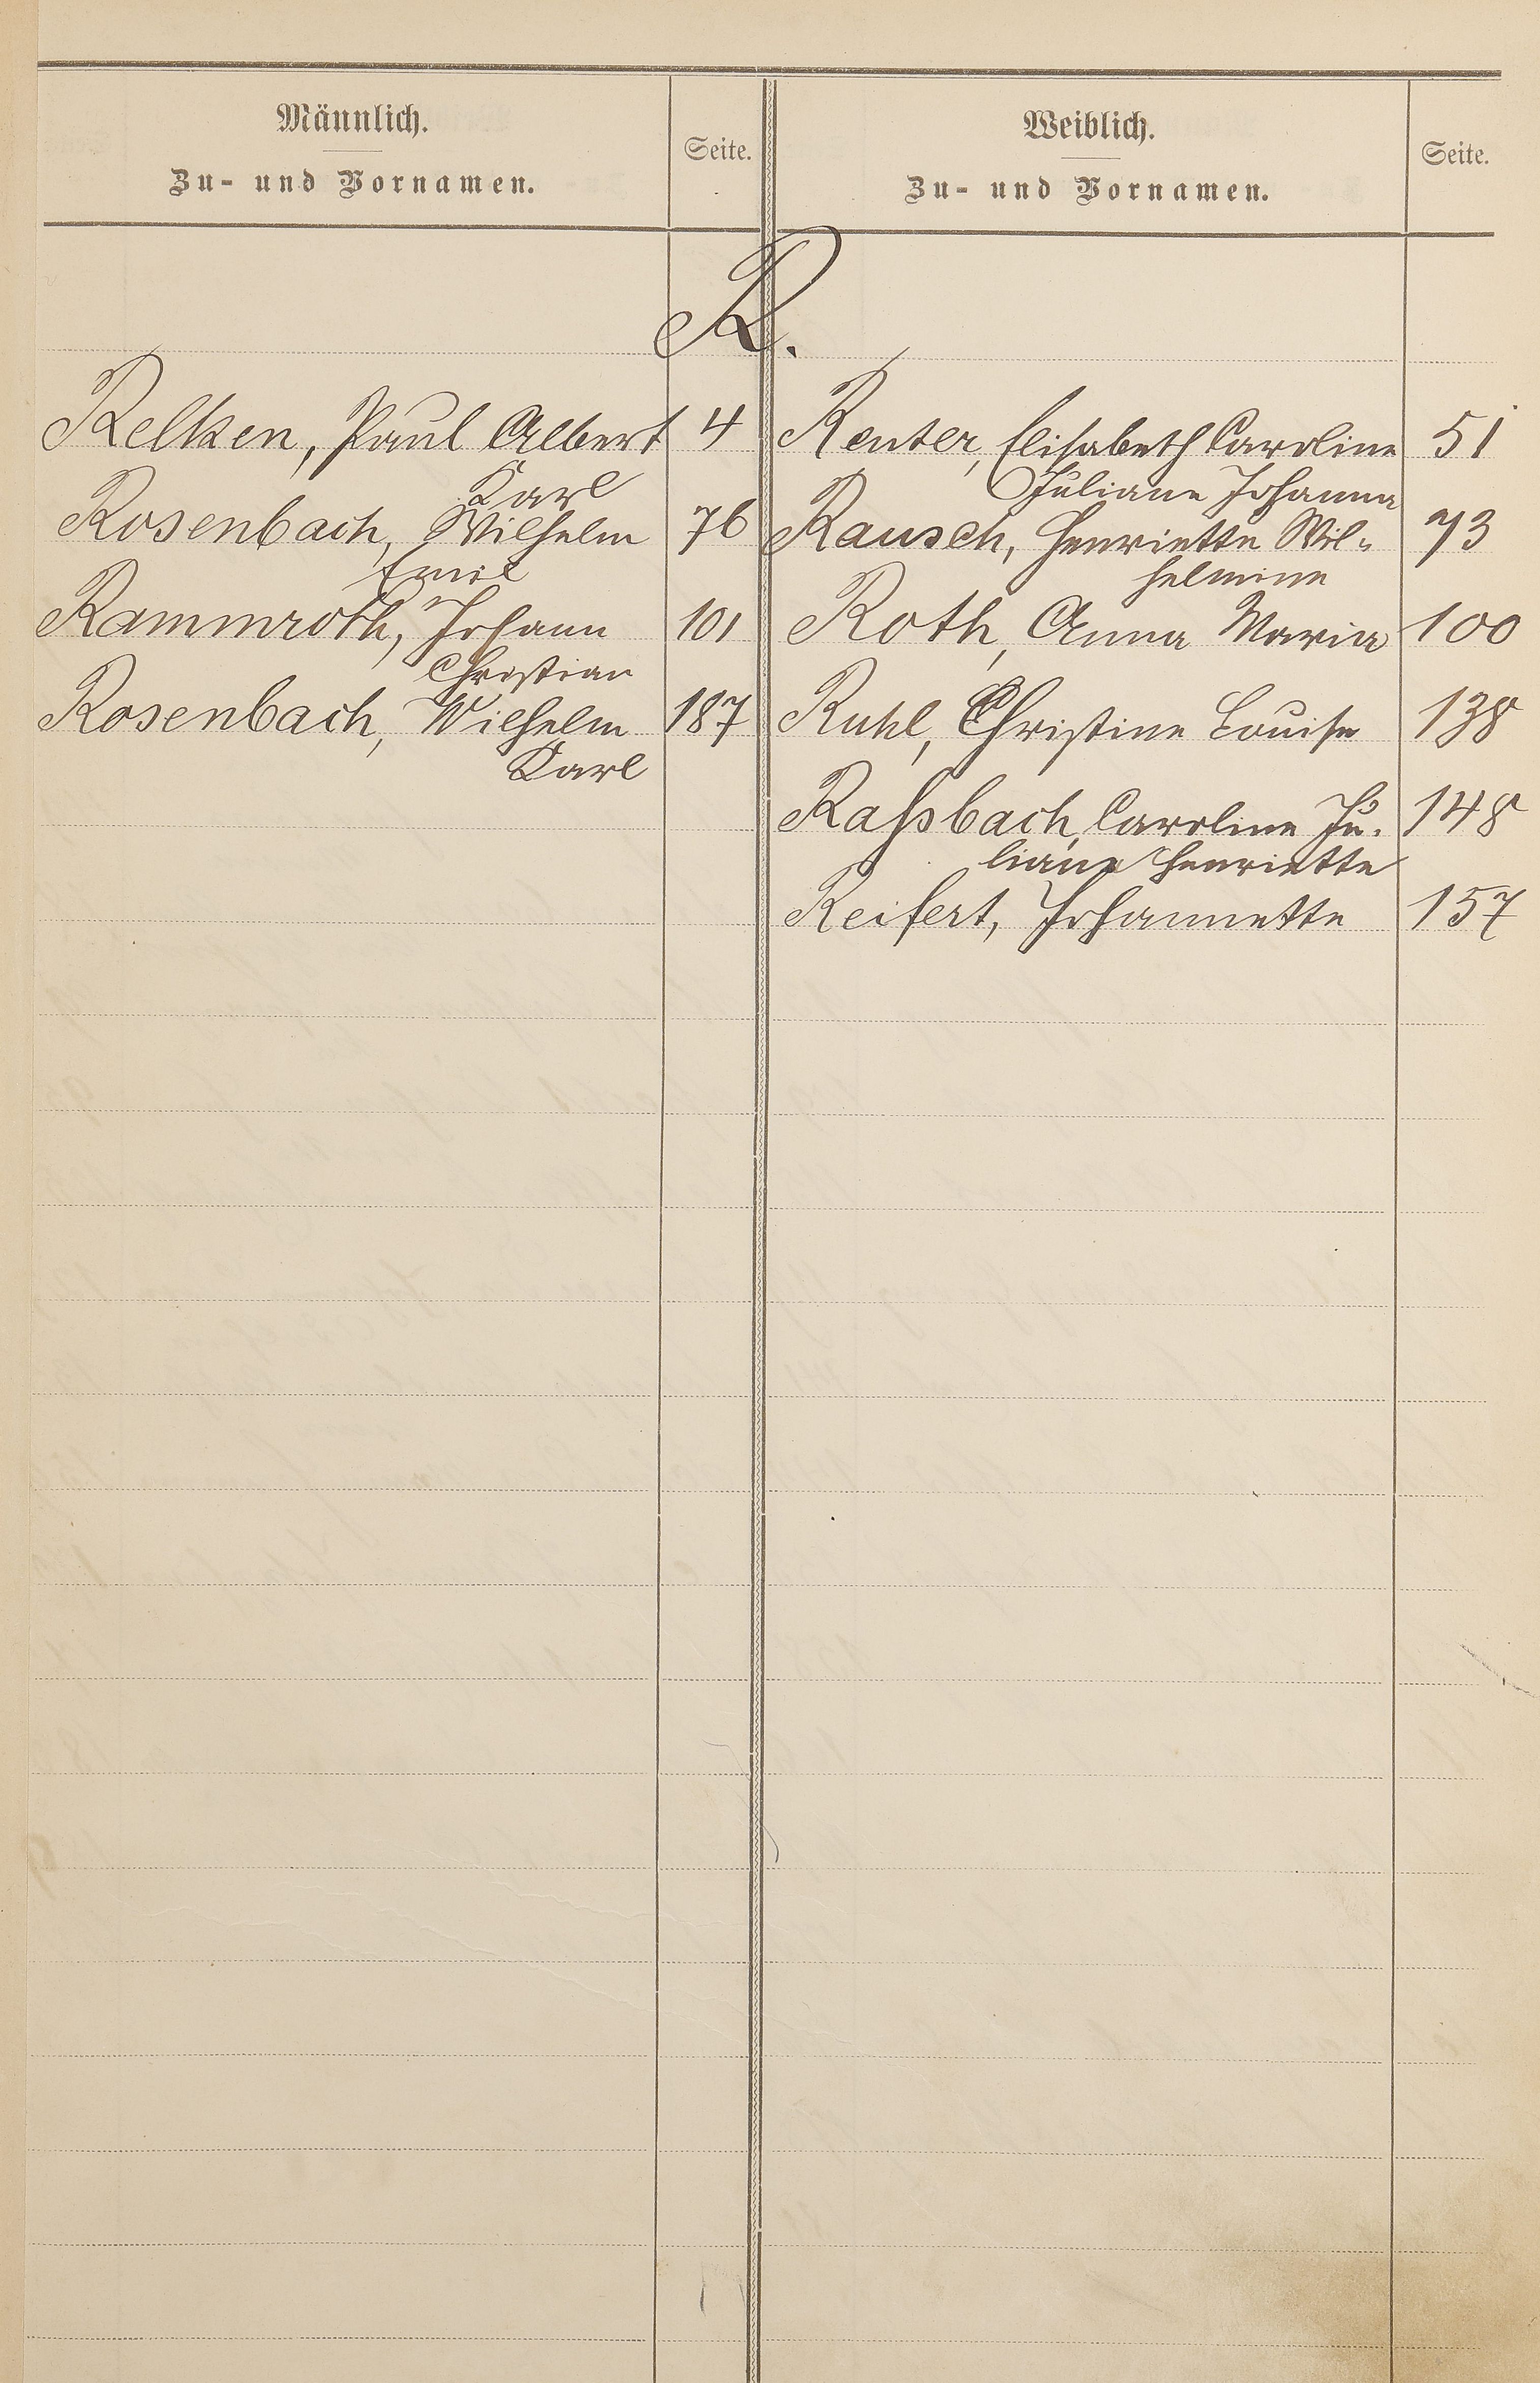 Männlich.
Zu- und Vornamen.
Seite.
Weiblich.
Zu- und Vornamen.
Seite.
R.
Relken, Paul Albert 4
Karl
Rosenbach, Wilhelm 76
Emil
Rammroth, Johann 101
Christian
Rosenbach, Wilhelm 187
Karl
Reuter, Elisabeth Caroline 51
Juliane Johanna
Rausch, Henriette Wil- 73
helmine
Roth, Anna Maria 100
Ruhl, Christine Louise 138
Raßbach, Caroline Ju- 148
liane Henriette
Reifert, Johannette 157